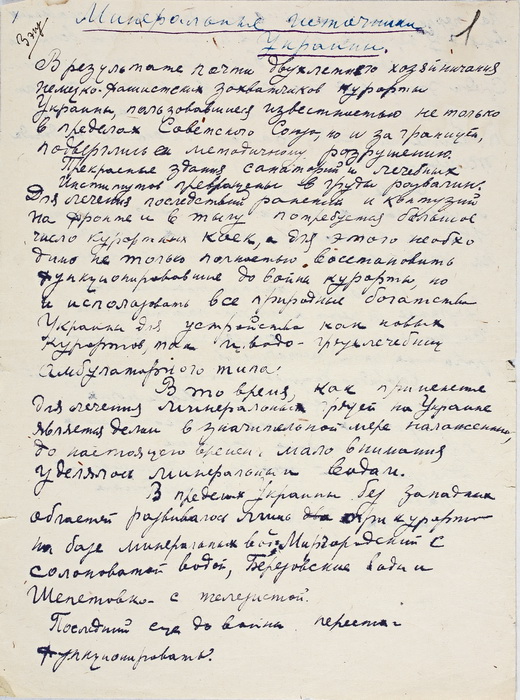 3 экз
1
Минеральные источники
Украины.
В результате почти двухлетнего хозяйничания
немецко-фашистских захватчиков курорты
Украины, пользовавшиеся известностью не только
в пределах Советского Союза, но и за границей,
подверглись методичному разрушению.
Прекрасные здания санаторий и лечебных
институтов превращены в груды развалин.
Для лечения последствий ранений и контузий
на фронте и в тылу потребуется большое
число курортных коек, а для этого необхо
димо не только полностью восстановить
функционировавшие до войны курорты, но
и использовать все природные богатства
Украины для устройства как новых
курортов, так и водо-грязелечебниц
амбулаторного типа.
В то время, как применение
для лечения минеральных грязей на Украине
является делом в значительной мере налаженным,
до настоящего времени мало внимания
уделялось минеральным водам.
В пределах Украины без западных
областей развивалось лишь два три курорта
на базе минеральных вод: Миргородский с
солоноватой водой, Березовские воды и
Шепетовка - с железистой.
Последний еще до войны перестал
функционировать.